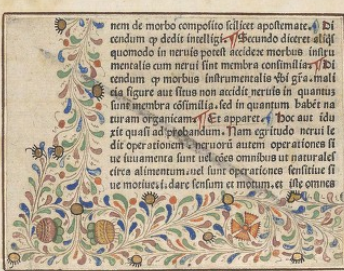 nem de morbo composito scilicet apostemate. Di
cendum qꝫ dedit intelligi. Secundo diceret aliqͥs
quomodo in neruis potest accidere morbus instru
mentalis cum nerui sint membra consimilia. Di
cendum qꝫ morbus instrumentalis vbi gr̃a. mali
cia figure aut situs non accidit neruis in quantuz
sunt membra cõsimilia. sed in quantum habẽt na
turam organicam. Et apparet. Hoc aut idu
xit quasi ad probandum. Nam egritudo nerui le
dit operationem. neruorũ autem operationes si
ue iuuamenta sunt uel cões omnibus ut naturales
circa alimentum. uel sunt operationes sensitiue si
ue motiue. i. dare sensum et motum. et iste omnes